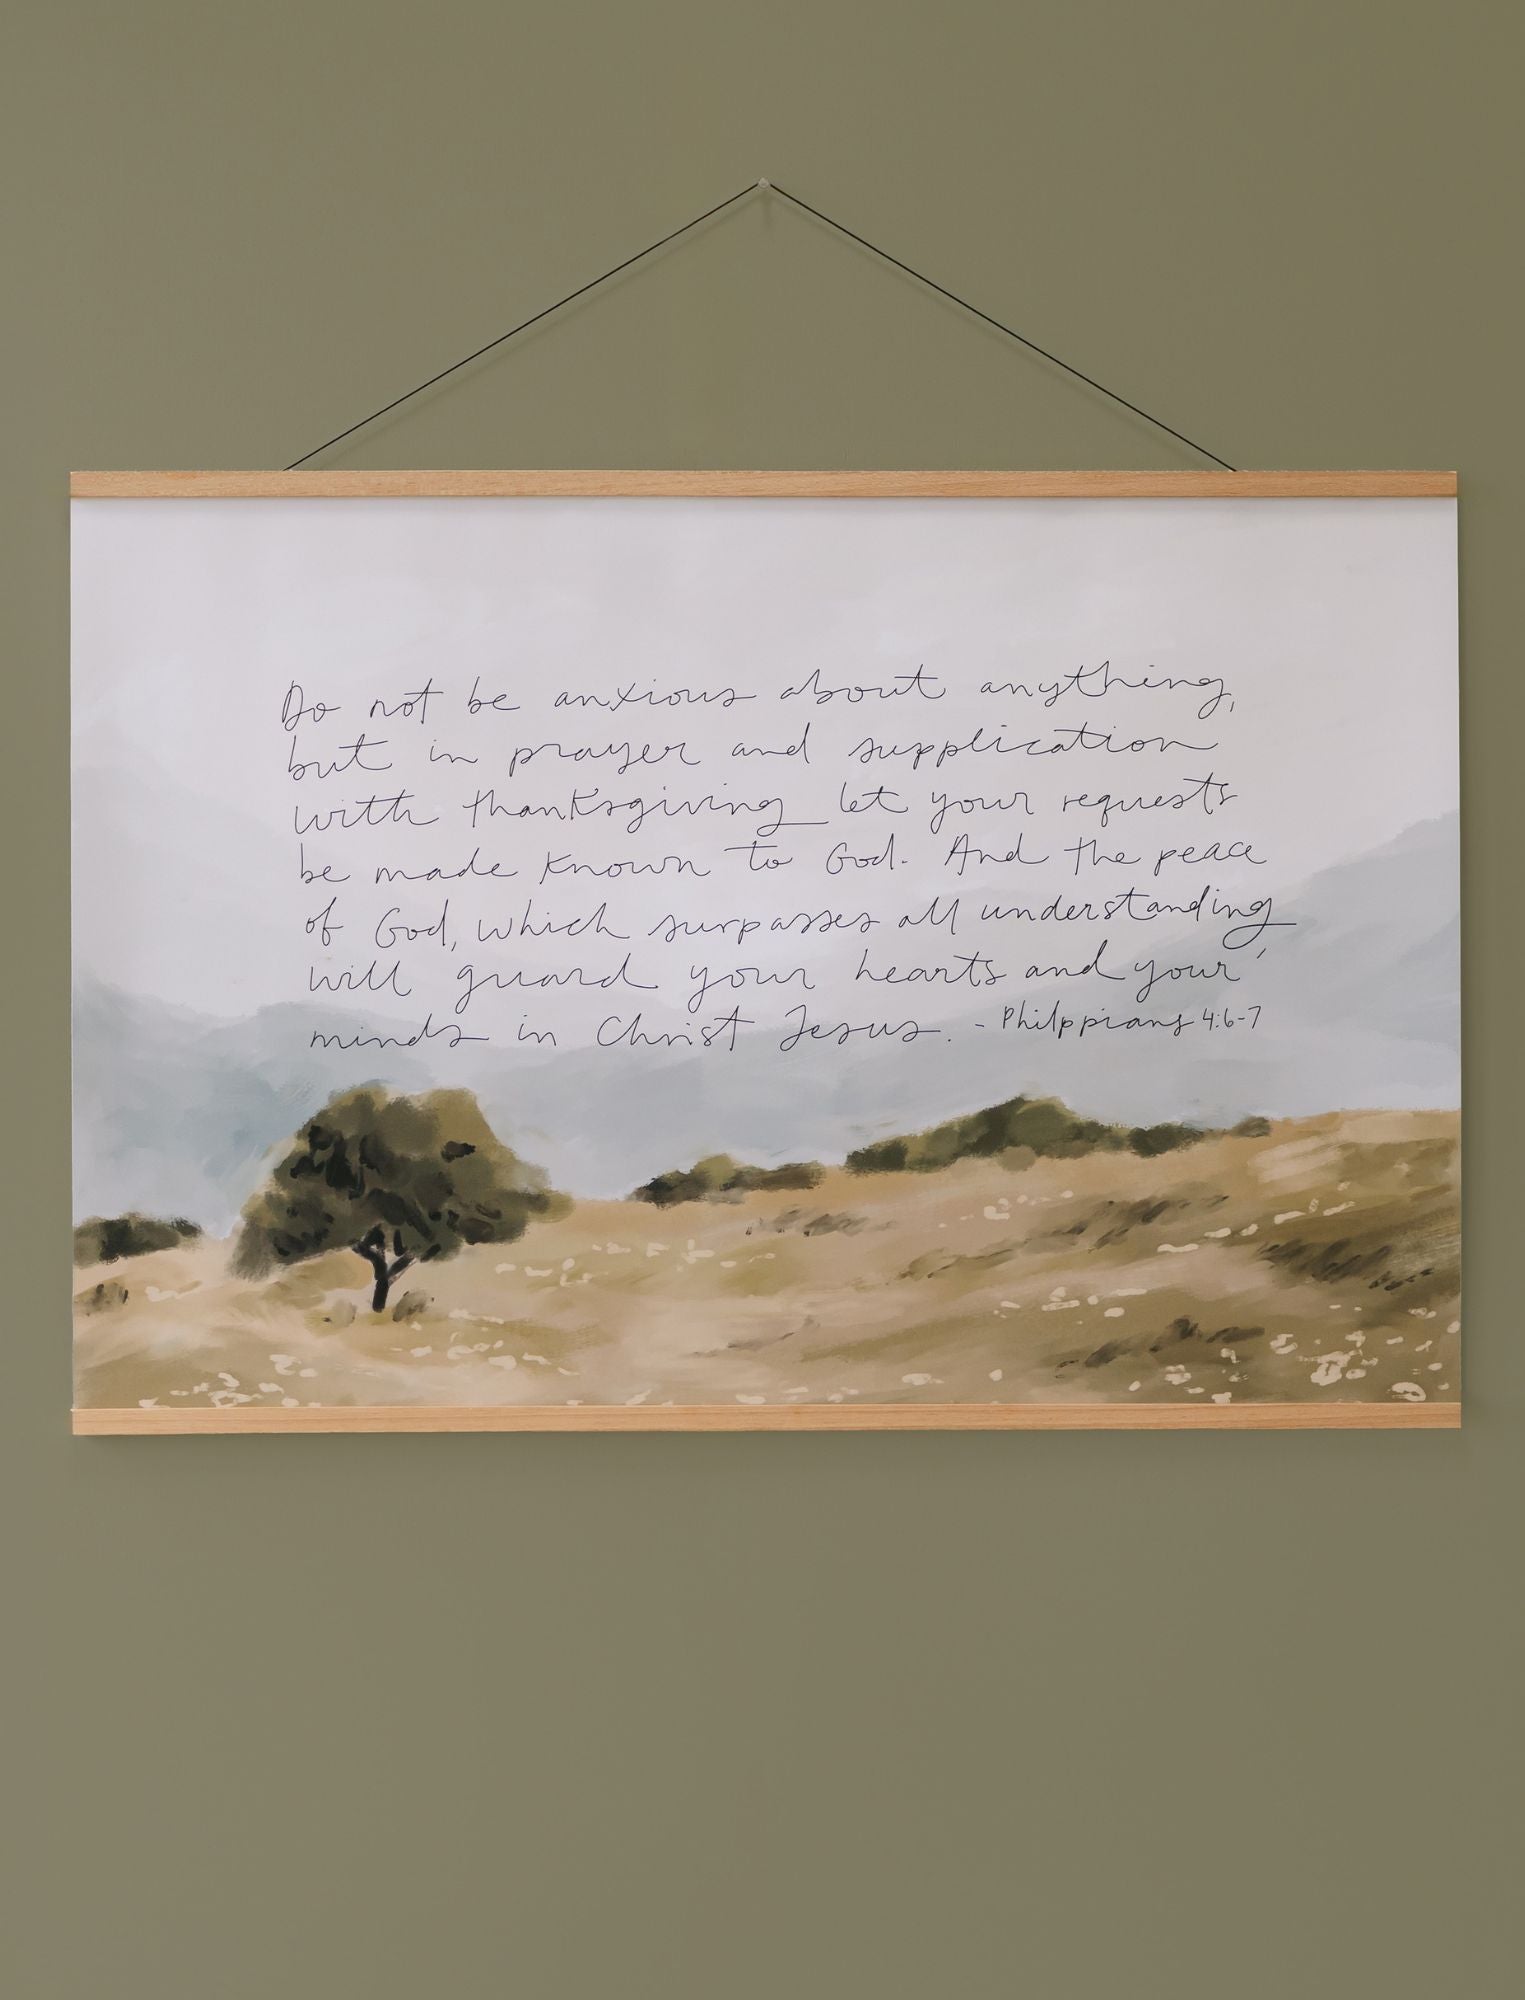 Do not be anxious about anything,
but in prayer and supplication
with thanksgiving let your requests
be made known to God. And the peace
of God, which surpasses all understanding,
will guard your hearts and your
minds in Christ Jesus. - Philppians 4:6-7